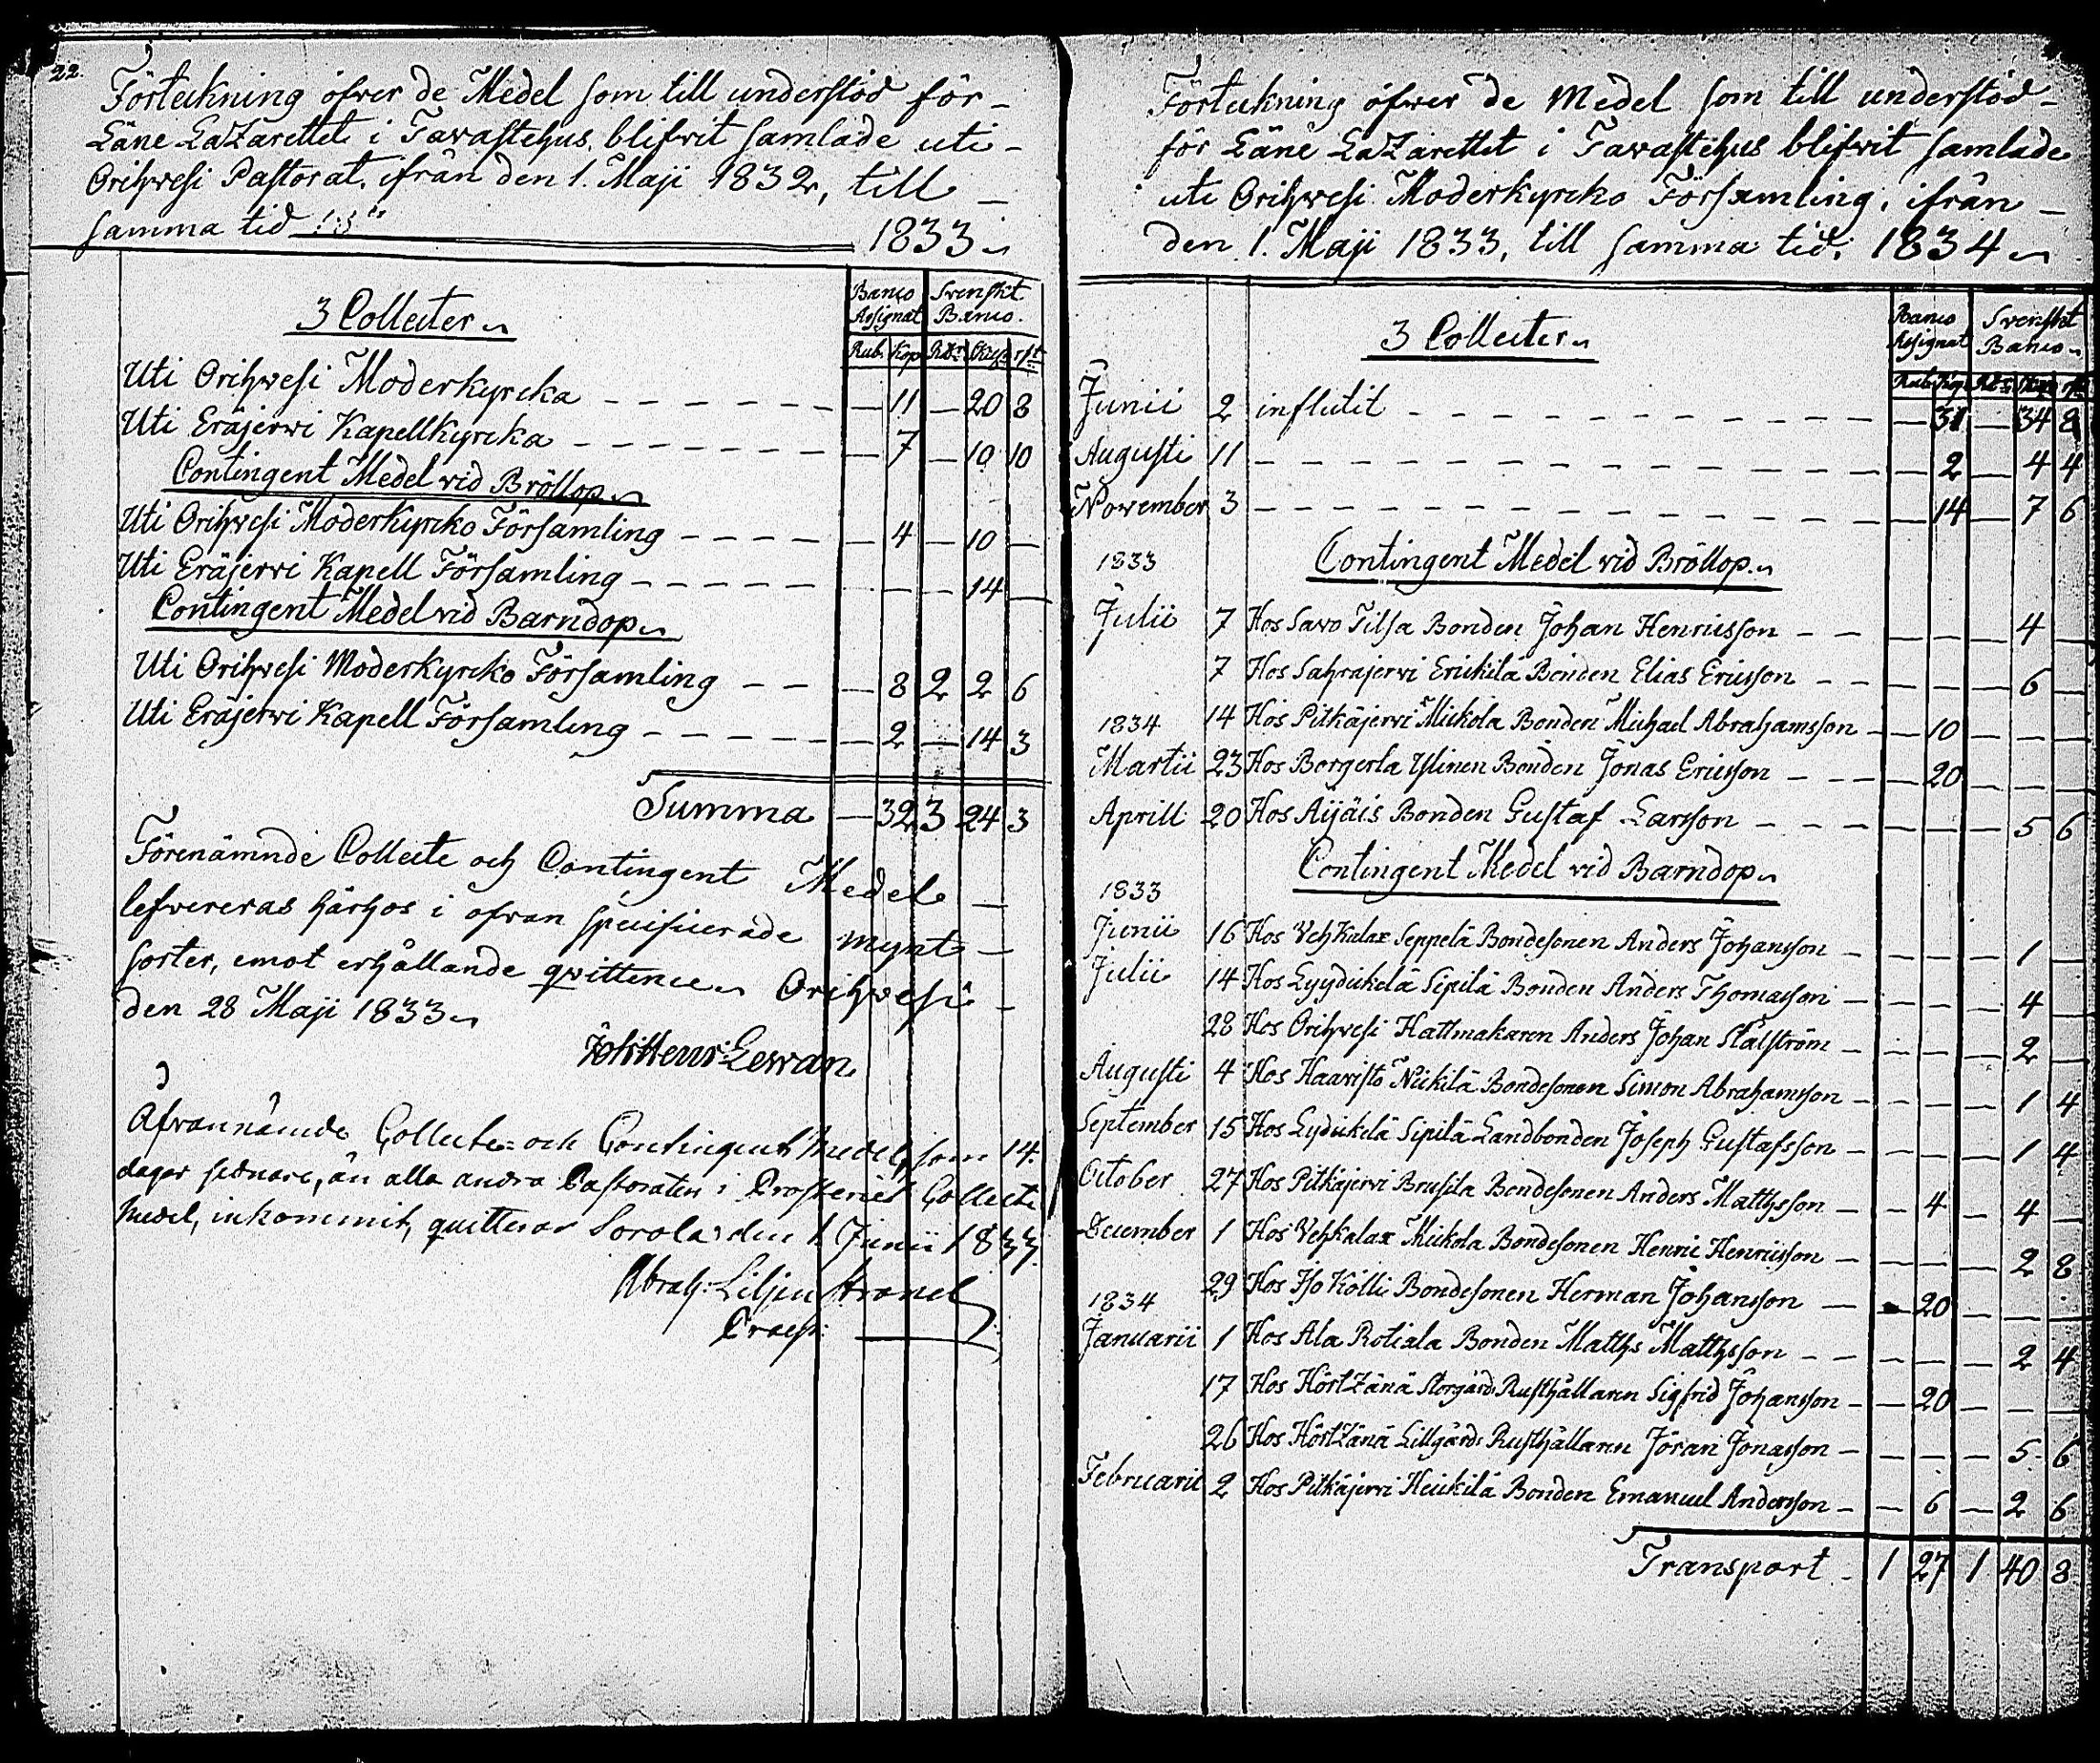 22.
Förteckning öfver de Medel som till understöd för-
Läne Lazarettet i Tavastehus, blifvit samlade uti-
Orihwesi Pastorat, ifrån den 1. Maji 1832, till
samma tid 1833
Banco Assignat Svenskt Banco.
3 Collecter
Rub. Kop Rdr Skill rst
Uti Orihwesi Moderkyrcka — 11 — 20 8
Uti Eräjerwi Kapellkyrcka — 7 — 10 10
Contingent Medel vid Bröllop
Uti Orihwesi Moderkyrcko Församling — 4 — 10 —
Uti Eräjerwi Kapell Församling — — — 14 —
Contingent Medel vid Barndop
Uti Orihwesi Moderkyrcko Församling — 8 2 2 6
Uti Eräjerwi Kapell Församling — 2 — 14 3
Summa — 32 3 24 3
Förenämnde Collecte och Contingent Medel
lefvereras härhos i ofvan specificerade mynt-
sorter, emot erhållande qvittence. Orihwesi
den 28 Maji 1833
Joh: Henr: Lewan
Ofvannämde Collecte- och Contingent Medel, som 14.
dagar sednare, än alla andra Pastoraters i Prosteriet Collecte
Medel, inkommit, quitterar Sorola den 1 Junii 1833.
Abrah: Liljenstrand
Praep:
Förteckning öfwer de Medel som till understöd-
för Läne Lazarettet i Tavastehus blifvit samlade
uti Orihwesi Moderkyrcko Församling, ifrån
den 1. Maji 1833, till samma tid, 1834
Banco Assignat Svenskt Banco
3 Collecter
Rub Kop Rdr Skill rst
Junii 2 influtit — 31 — 34 8
Augusti 11 — 2 — 4 4
November 3 — 14 — 7 6
1833 Contingent Medel vid Bröllop
Julii 7 Hos Savo Tilsa Bonden Johan Henricsson — — — 4 —
7 Hos Sahrajerwi Erickilä Bonden Elias Ericsson — — — 6 —
1834 14 Hos Pitkäjerwi Mickola Bonden Michael Abrahamsson — 10 — — —
Martii 23 Hos Borgerla Yslinen Bonden Jonas Ericsson — 20 — — —
Aprill 20 Hos Äijäis Bonden Gustaf Larsson — — — 5 6
Contingent Medel vid Barndop
1833
Junii 16 Hos Vehkalax Seppelä Bondesonen Anders Johansson — — — 1 —
Julii 14 Hos Lyydickelä Sipilä Bonden Anders Thomasson — — — 4 —
28 Hos Orihwesi Hattmakaren Anders Johan Stålström — — — 2 —
Augusti 4 Hos Haavisto Nickilä Bondesonen Simon Abrahamsson — — — 1 4
September 15 Hos Lydickelä Sipilä Landbonden Joseph Gustafsson — — — 1 4
October 27 Hos Pitkäjerwi Brusila Bondesonen Anders Matthsson — 4 — 4 —
December 1 Hos Vehkalax Mickola Bondesonen Henric Henricsson — — — 2 8
29 Hos Iso Kölli Bondesonen Herman Johansson — 20 — — —
1834
Januarii 1 Hos Ala Rotiala Bonden Matths Matthsson — — — 2 4
17 Hos Hörtzänä Storgårds Rusthållaren Sigfrid Johansson — 20 — — —
26 Hos Hörtzänä Lillgårds Rusthållaren Jöran Jonasson — — — 5 6
Februarii 2 Hos Pitkäjerwi Heickilä Bonden Emanuel Andersson — 6 — 2 6
Transport 1 27 1 40 8